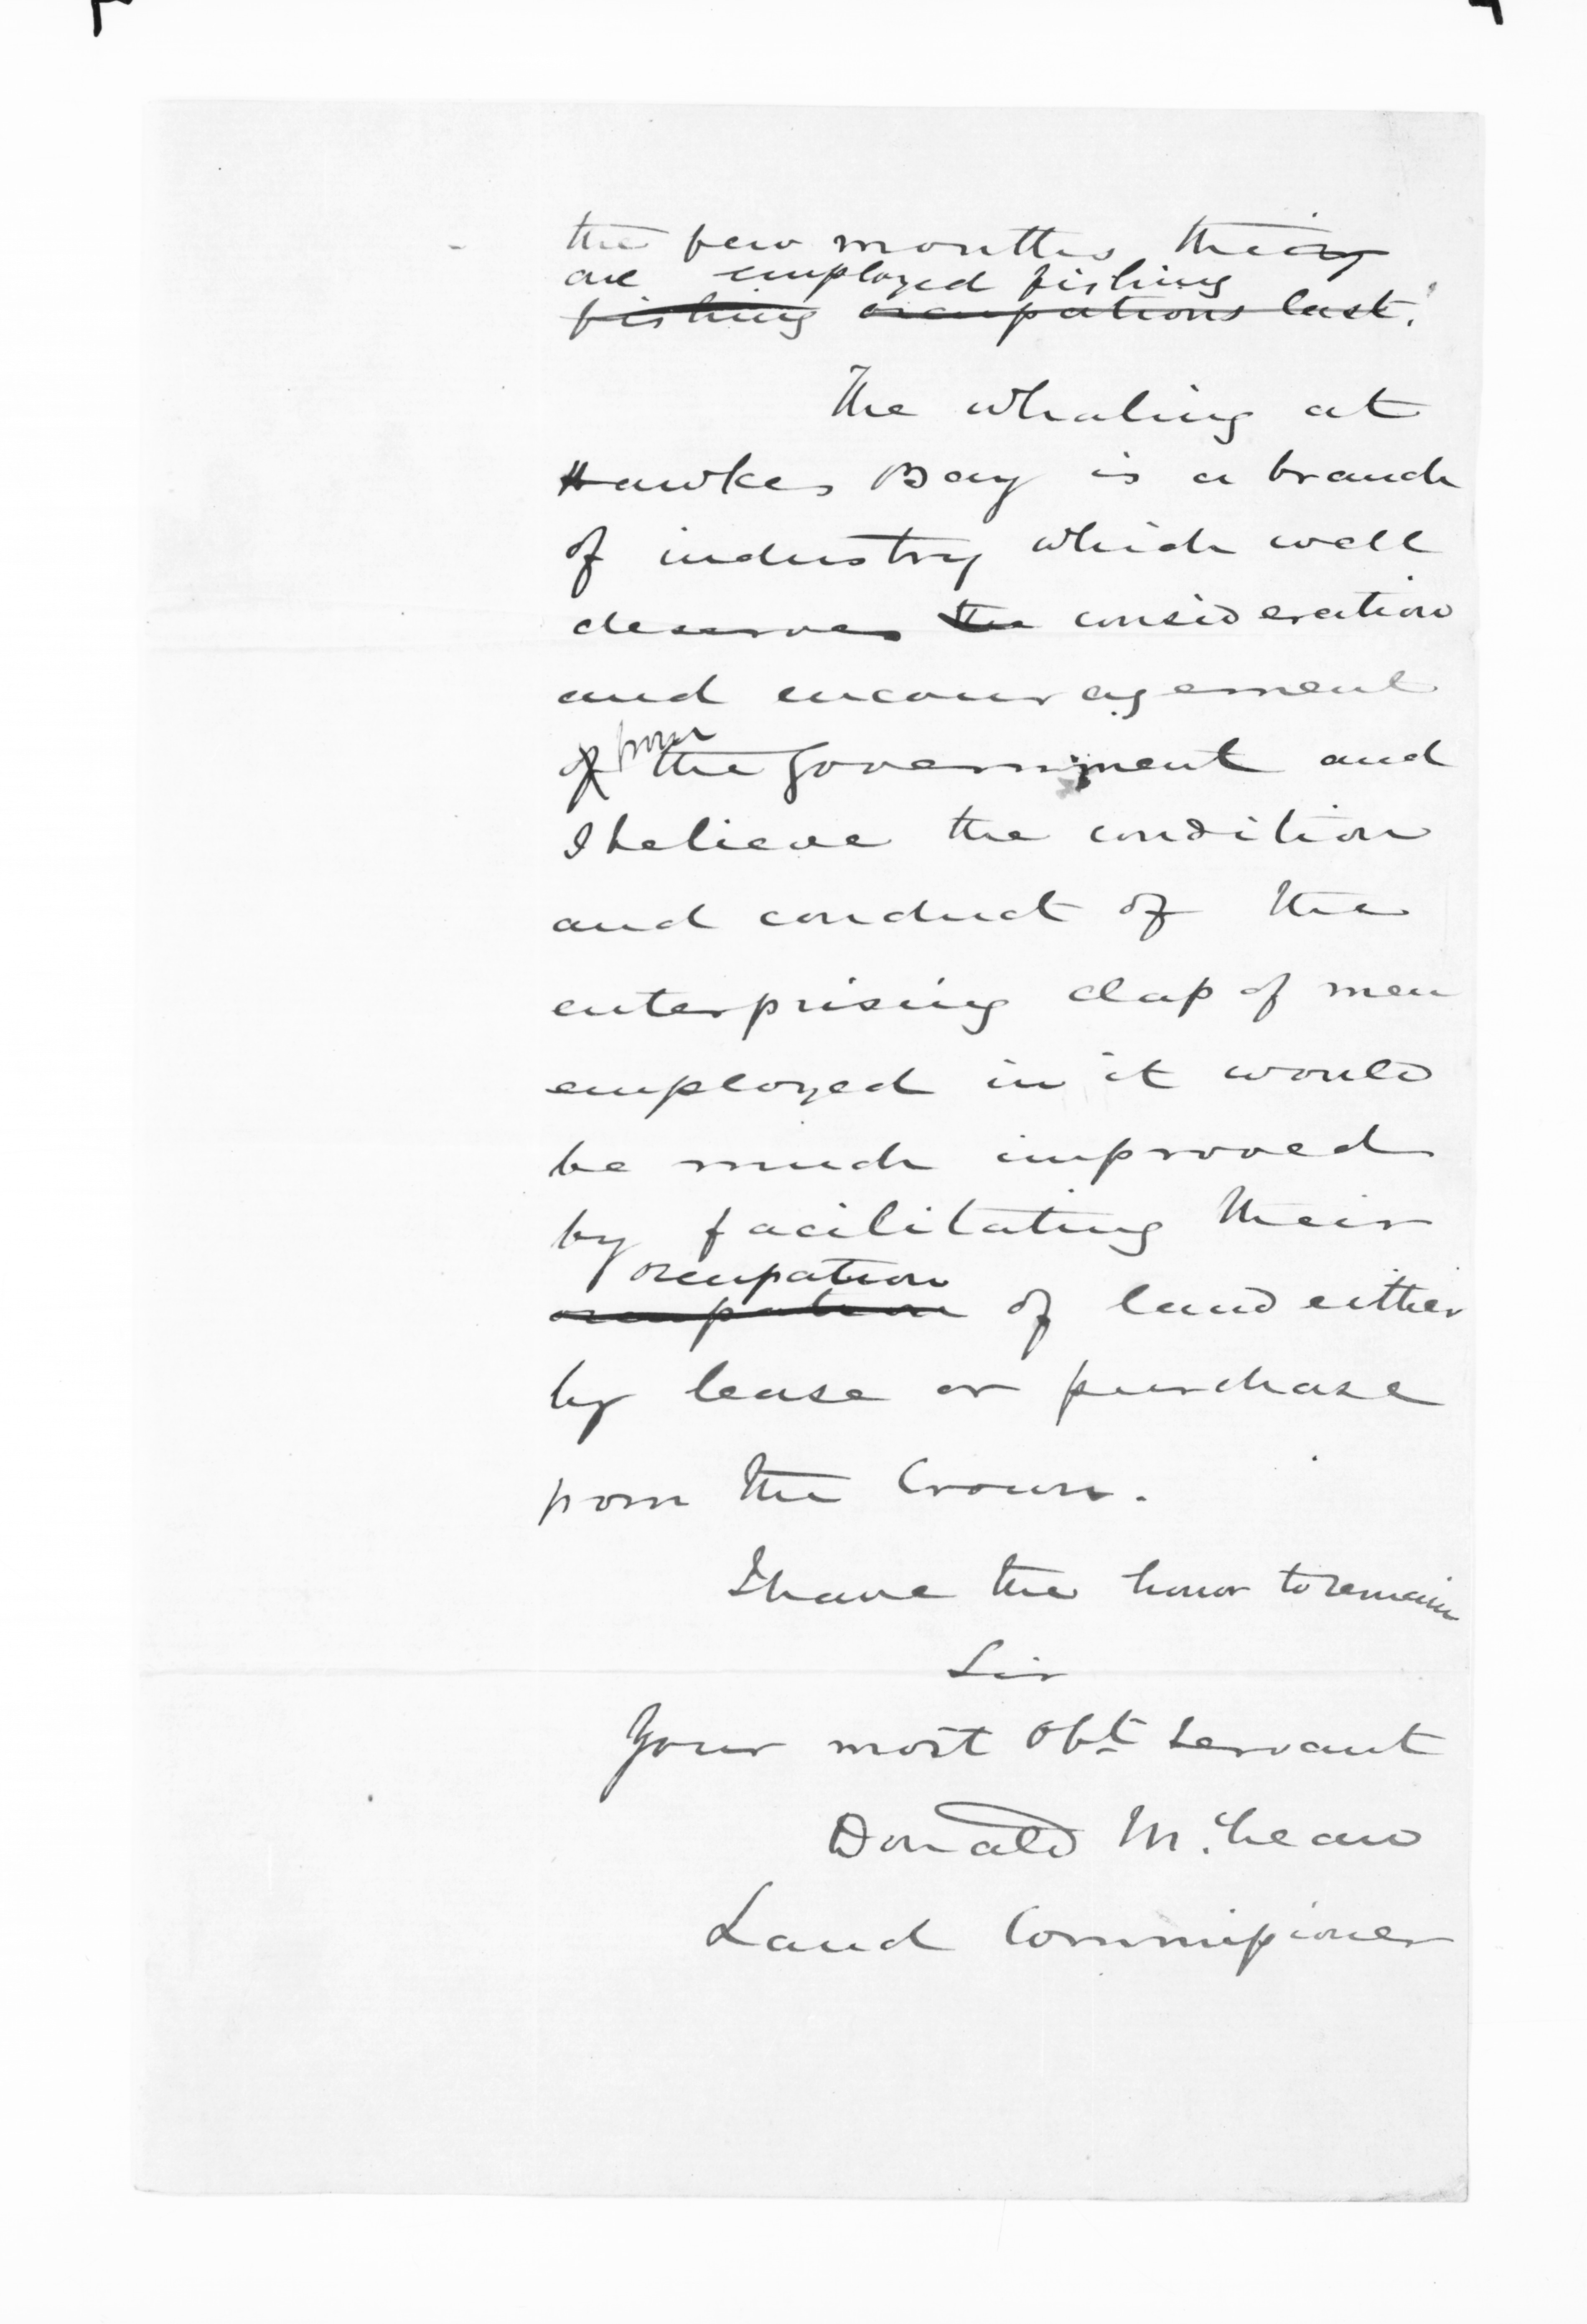 the few months they
are employed fishing
fishing occupations last.
The whaling at
Hawkes Bay is a branch
of industry which well
deserves the consideration
and encouragement
from
of the Government and
I believe the condition
and conduct of the
enterprising class of men
employed in it would
be much improved
by facilitating their
occupation
occupation of land either
by lease or purchase
from the Crown.
I have the honor to remain
Sir
Your most Obt. Servant
Donald McLean
Land Commissioner